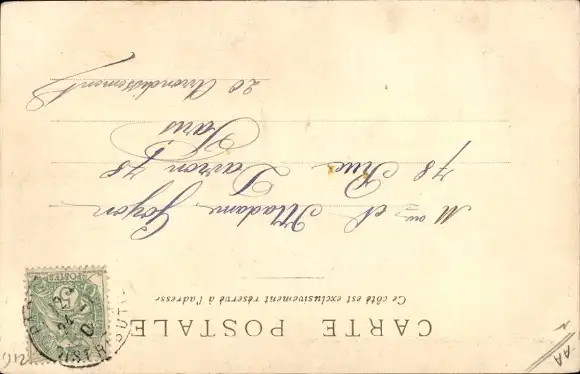 CARTE POSTALE
Ce côté est exclusivement réservé à l'adresse
Mr et Madame Goyon
78 Rue D'avron 78
Paris
20 Arrondissement
POSTES
DISTRIBUTI
AA